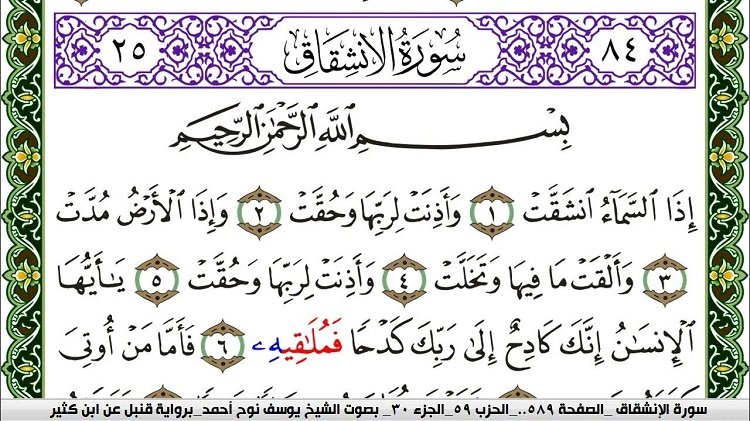 ٨٤ سُورَةُ الِانشِقَاقِ ٢٥
بِسْمِ اللَّهِ الرَّحْمَٰنِ الرَّحِيمِ
إِذَا السَّمَآءُ انشَقَّتْ ١ وَأَذِنَتْ لِرَبِّهَا وَحُقَّتْ ٢ وَإِذَا الْأَرْضُ مُدَّتْ
٣ وَأَلْقَتْ مَا فِيهَا وَتَخَلَّتْ ٤ وَأَذِنَتْ لِرَبِّهَا وَحُقَّتْ ٥ يَٰٓأَيُّهَا
الْإِنسَٰنُ إِنَّكَ كَادِحٌ إِلَىٰ رَبِّكَ كَدْحًا فَمُلَٰقِيهِۦ ٦ فَأَمَّا مَنْ أُوتِيَ
سورة الإنشقاق _الصفحة ٥٨٩.._الحزب ٥٩_الجزء ٣٠_ بصوت الشيخ يوسف نوح أحمد_برواية قنبل عن ابن كثير